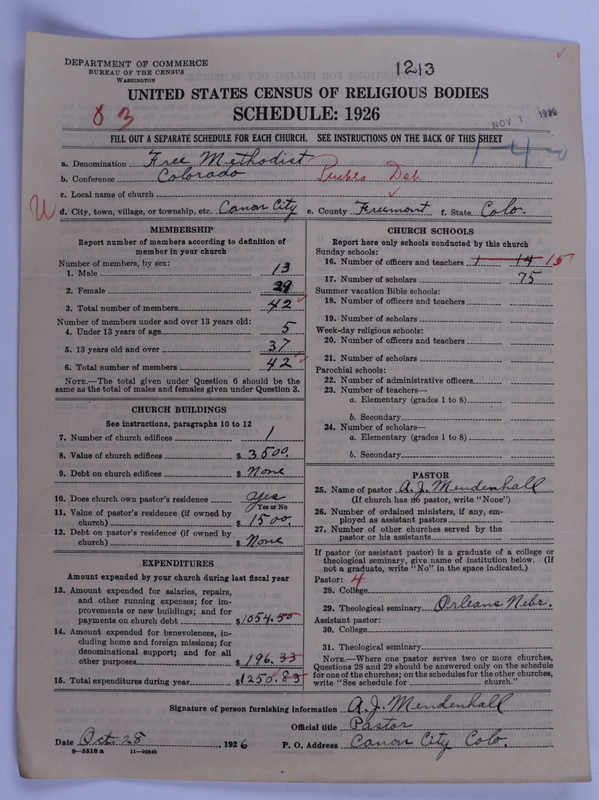 DEPARTMENT OF COMMERCE
BUREAU OF THE CENSUS
WASHINGTON
1213
UNITED STATES CENSUS OF RELIGIOUS BODIES
SCHEDULE: 1926
83
NOV 1 1926
FILL OUT A SEPARATE SCHEDULE FOR EACH CHURCH. SEE INSTRUCTIONS ON THE BACK OF THIS SHEET
a. Denomination Free Methodist
b. Conference Colorado Pueblo Dst
c. Local name of church
d. City, town, village, or township, etc. Canon City e. County Freemont f. State Colo.
MEMBERSHIP
Report number of members according to definition of member in your church
Number of members, by sex:
1. Male 13
2. Female 29
3. Total number of members 42
Number of members under and over 13 years old:
4. Under 13 years of age 5
5. 13 years old and over 37
6. Total number of members 42
NOTE.—The total given under Question 6 should be the same as the total of males and females given under Question 3.
CHURCH BUILDINGS
See instructions, paragraphs 10 to 12
7. Number of church edifices 1
8. Value of church edifices $ 3500.
9. Debt on church edifices $ None
10. Does church own pastor's residence yes
Yes or No
11. Value of pastor's residence (if owned by church) $ 1500.
12. Debt on pastor's residence (if owned by church) $ None
EXPENDITURES
Amount expended by your church during last fiscal year
13. Amount expended for salaries, repairs, and other running expenses; for improvements or new buildings; and for payments on church debt $1054.50
14. Amount expended for benevolences, including home and foreign missions; for denominational support; and for all other purposes $ 196.33
15. Total expenditures during year $1250.83
CHURCH SCHOOLS
Report here only schools conducted by this church
Sunday schools:
16. Number of officers and teachers 1 14 15
17. Number of scholars 75
Summer vacation Bible schools:
18. Number of officers and teachers
19. Number of scholars
Week-day religious schools:
20. Number of officers and teachers
21. Number of scholars
Parochial schools:
22. Number of administrative officers
23. Number of teachers—
a. Elementary (grades 1 to 8)
b. Secondary
24. Number of scholars—
a. Elementary (grades 1 to 8)
b. Secondary
PASTOR
25. Name of pastor A. J. Mendenhall
(If church has no pastor, write "None")
26. Number of ordained ministers, if any, employed as assistant pastors
27. Number of other churches served by the pastor or his assistants
If pastor (or assistant pastor) is a graduate of a college or theological seminary, give name of institution below. (If not a graduate, write "No" in the space indicated.)
Pastor: 4
28. College
29. Theological seminary Orleans Nebr.
Assistant pastor:
30. College
31. Theological seminary
NOTE.—Where one pastor serves two or more churches, Questions 28 and 29 should be answered only on the schedule for one of the churches; on the schedules for the other churches, write "See schedule for church."
Signature of person furnishing information A. J. Mendenhall
Official title Pastor
Date Oct. 28, 1926 P. O. Address Canon City Colo.
8—5518a 11—9034b